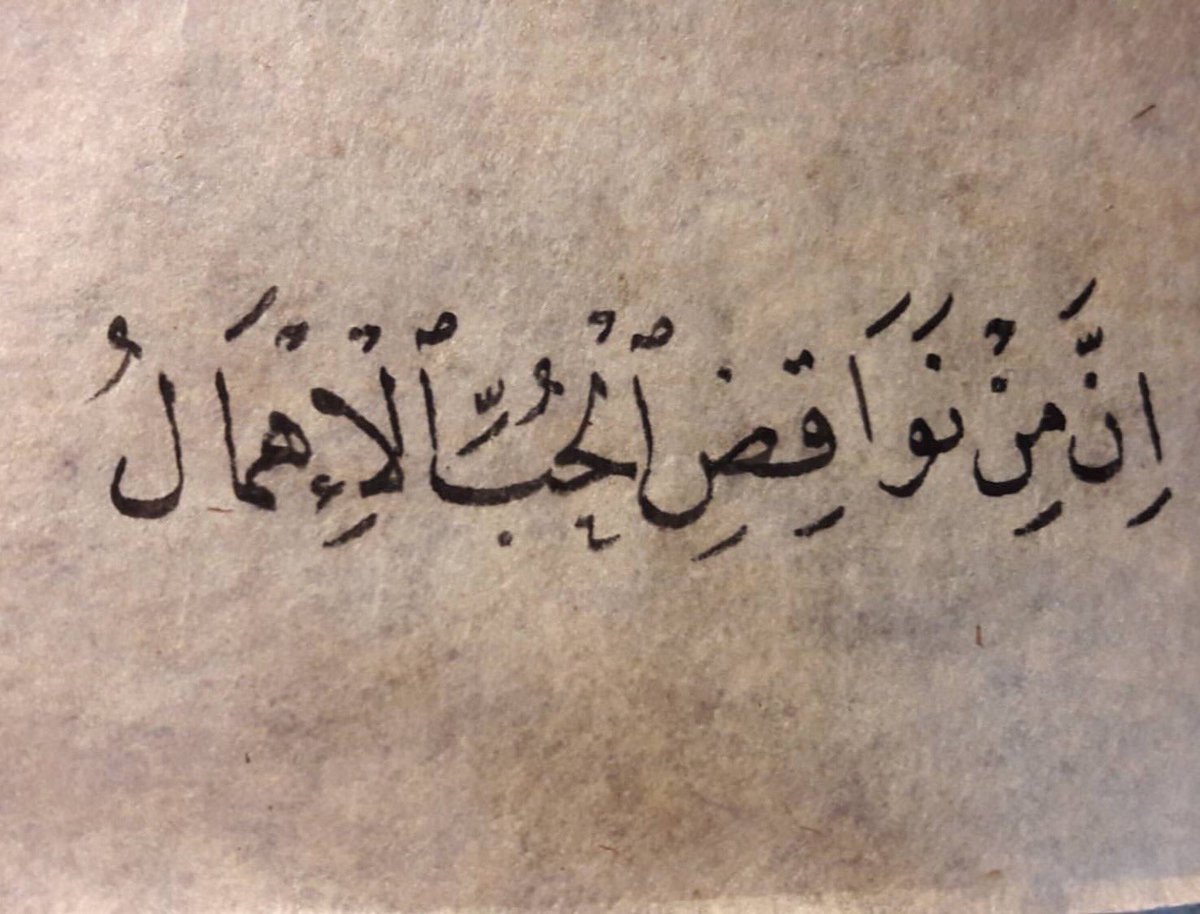 اِنَّ مِنْ نَوَاقِضِ ٱلْحُبِّ ٱلْإِهْمَالُ